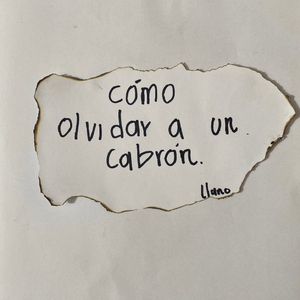 cómo
olvidar a un
cabrón.
Llano